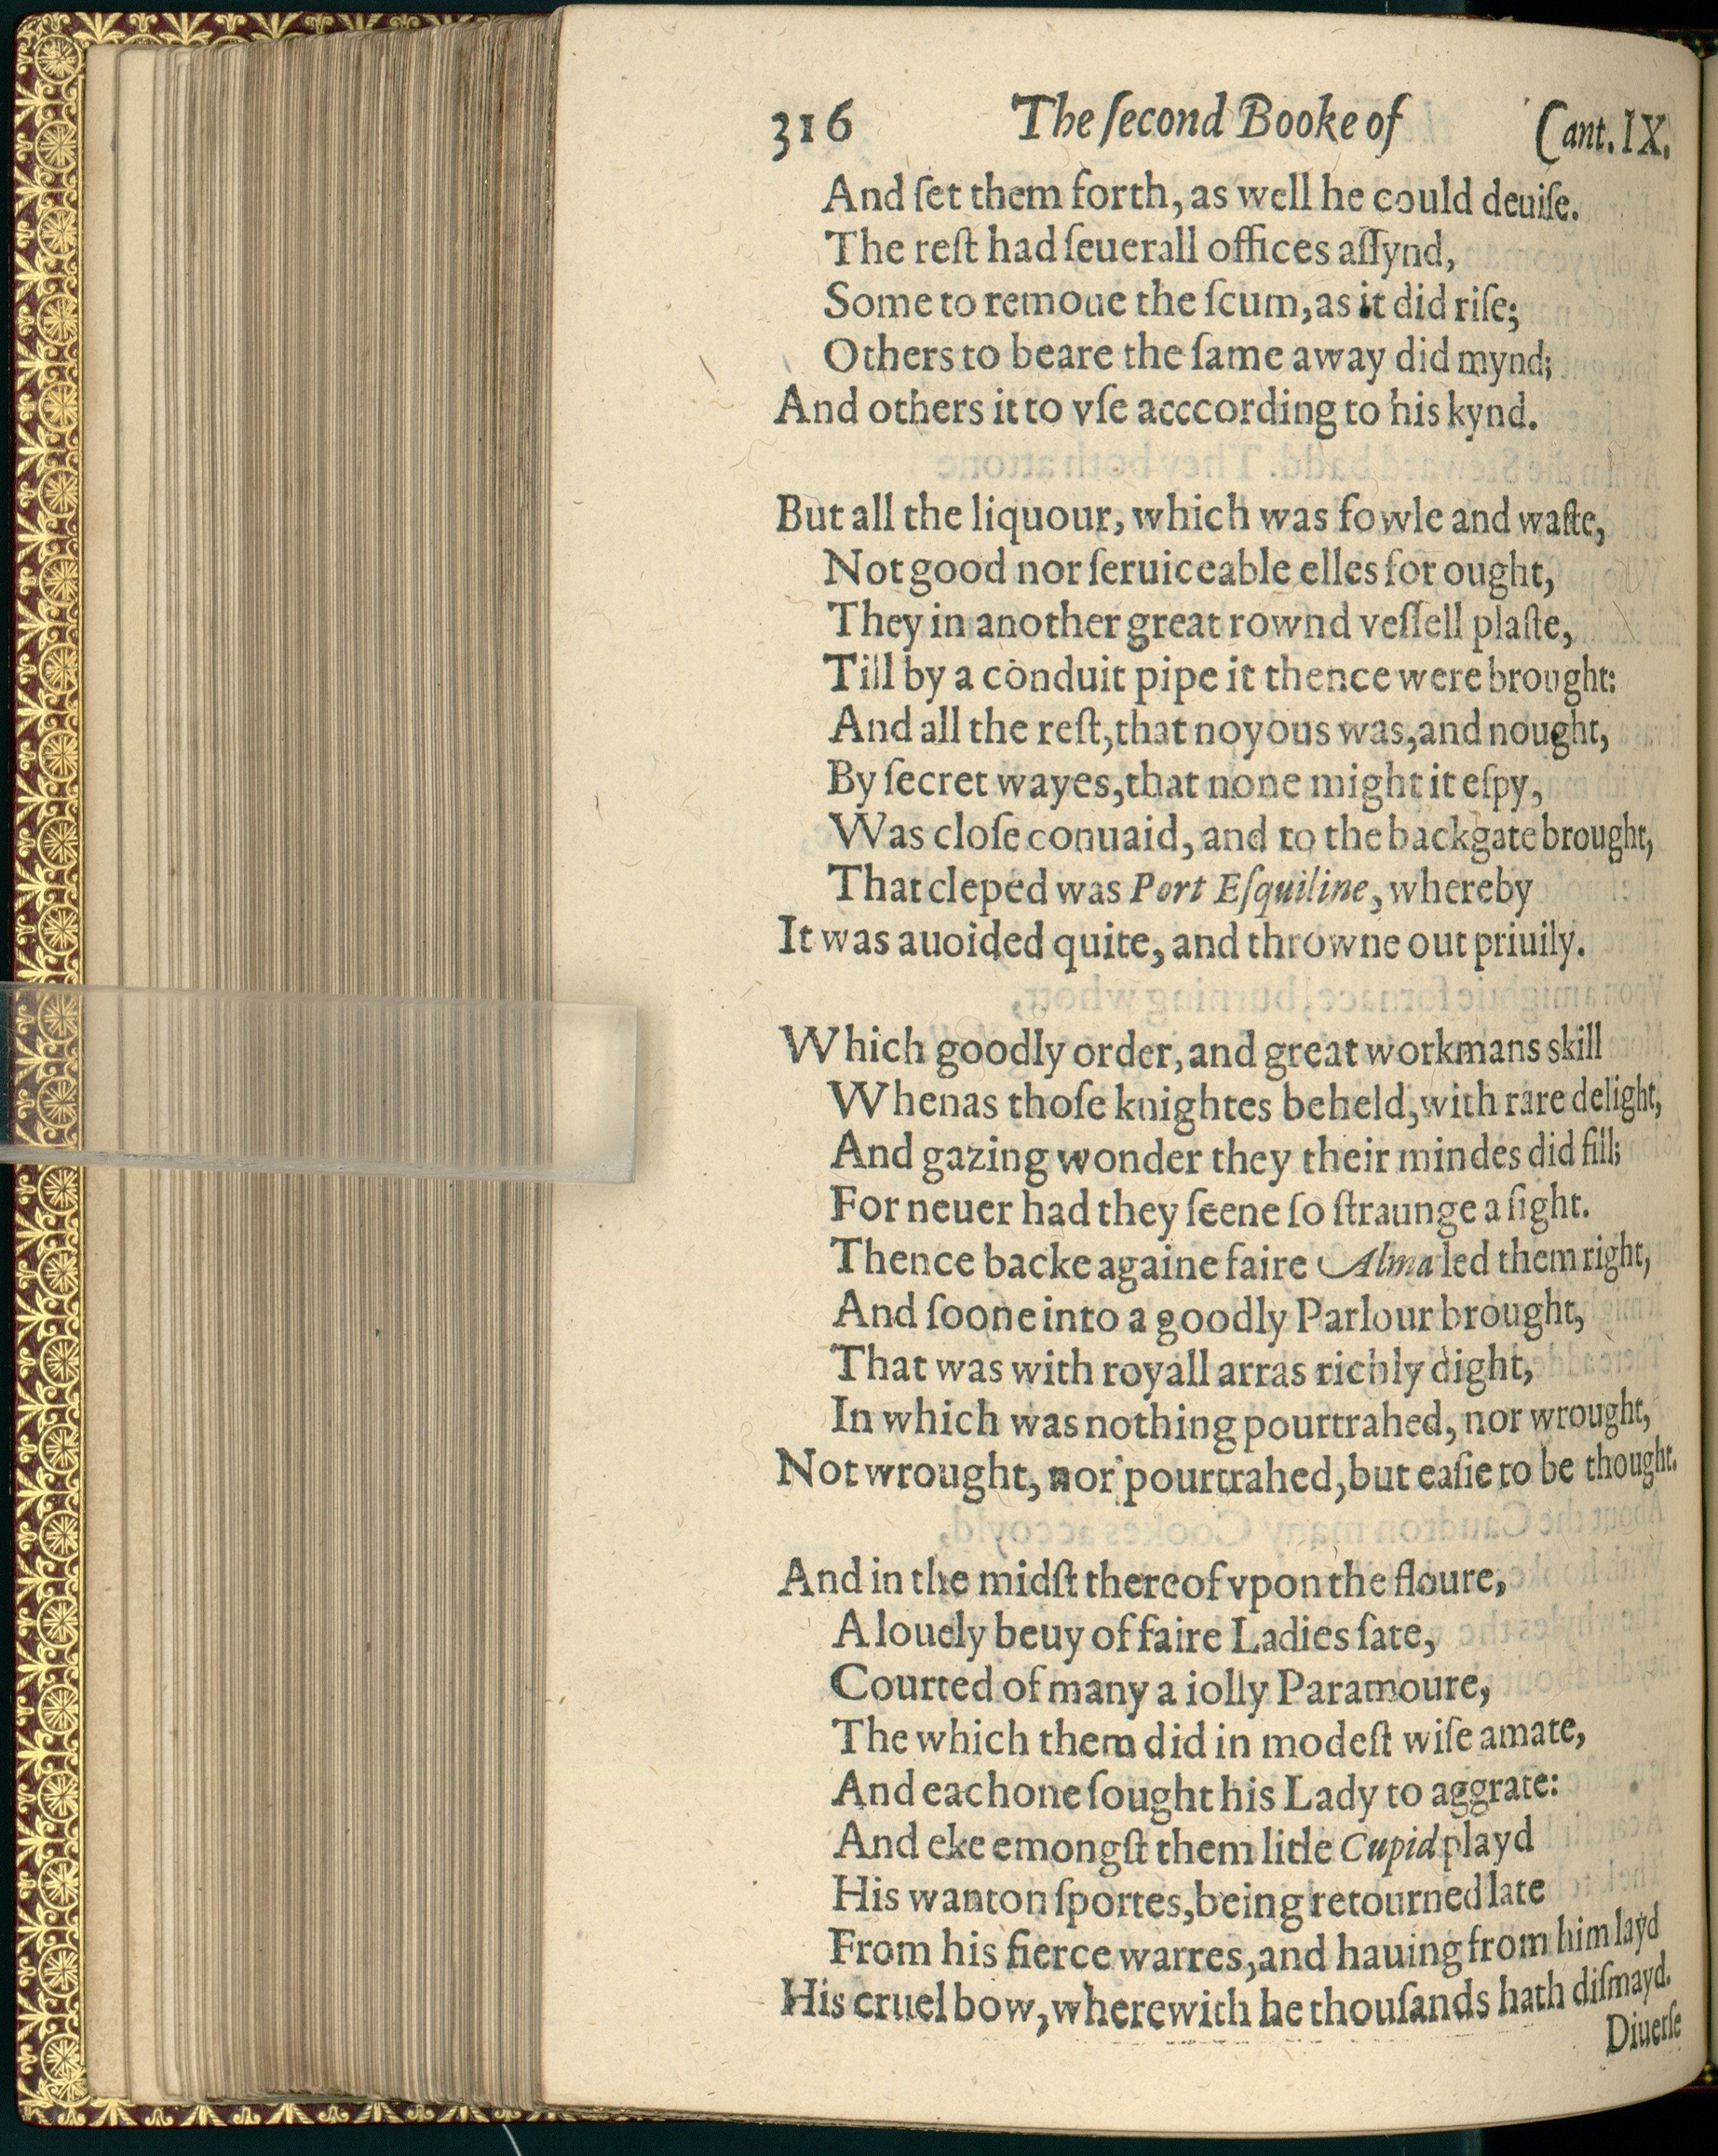 316 The ſecond Booke of Cant. IX.
And ſet them forth, as well he could deuiſe.
The reſt had ſeuerall offices aſſynd,
Some to remoue the ſcum, as it did riſe;
Others to beare the ſame away did mynd;
And others it to vſe acccording to his kynd.
But all the liquour, which was fowle and waſte,
Not good nor ſeruiceable elles for ought,
They in another great rownd veſſell plaſte,
Till by a conduit pipe it thence were brought:
And all the reſt, that noyous was, and nought,
By ſecret wayes, that none might it eſpy,
Was cloſe conuaid, and to the backgate brought,
That cleped was Port Eſquiline, whereby
It was auoided quite, and throwne out priuily.
Which goodly order, and great workmans skill
Whenas thoſe knightes beheld, with rare delight,
And gazing wonder they their mindes did fill;
For neuer had they ſeene ſo ſtraunge a ſight.
Thence backe againe faire Alma led them right,
And ſoone into a goodly Parlour brought,
That was with royall arras richly dight,
In which was nothing pourtrahed, nor wrought,
Not wrought, nor pourtrahed, but eaſie to be thought.
And in the midſt thereof vpon the floure,
A louely beuy of faire Ladies ſate,
Courted of many a iolly Paramoure,
The which them did in modeſt wiſe amate,
And eachone ſought his Lady to aggrate:
And eke emongſt them litle Cupid playd
His wanton ſportes, being retourned late
From his fierce warres, and hauing from him layd
His cruel bow, wherewith he thouſands hath diſmayd.
Diuerſe